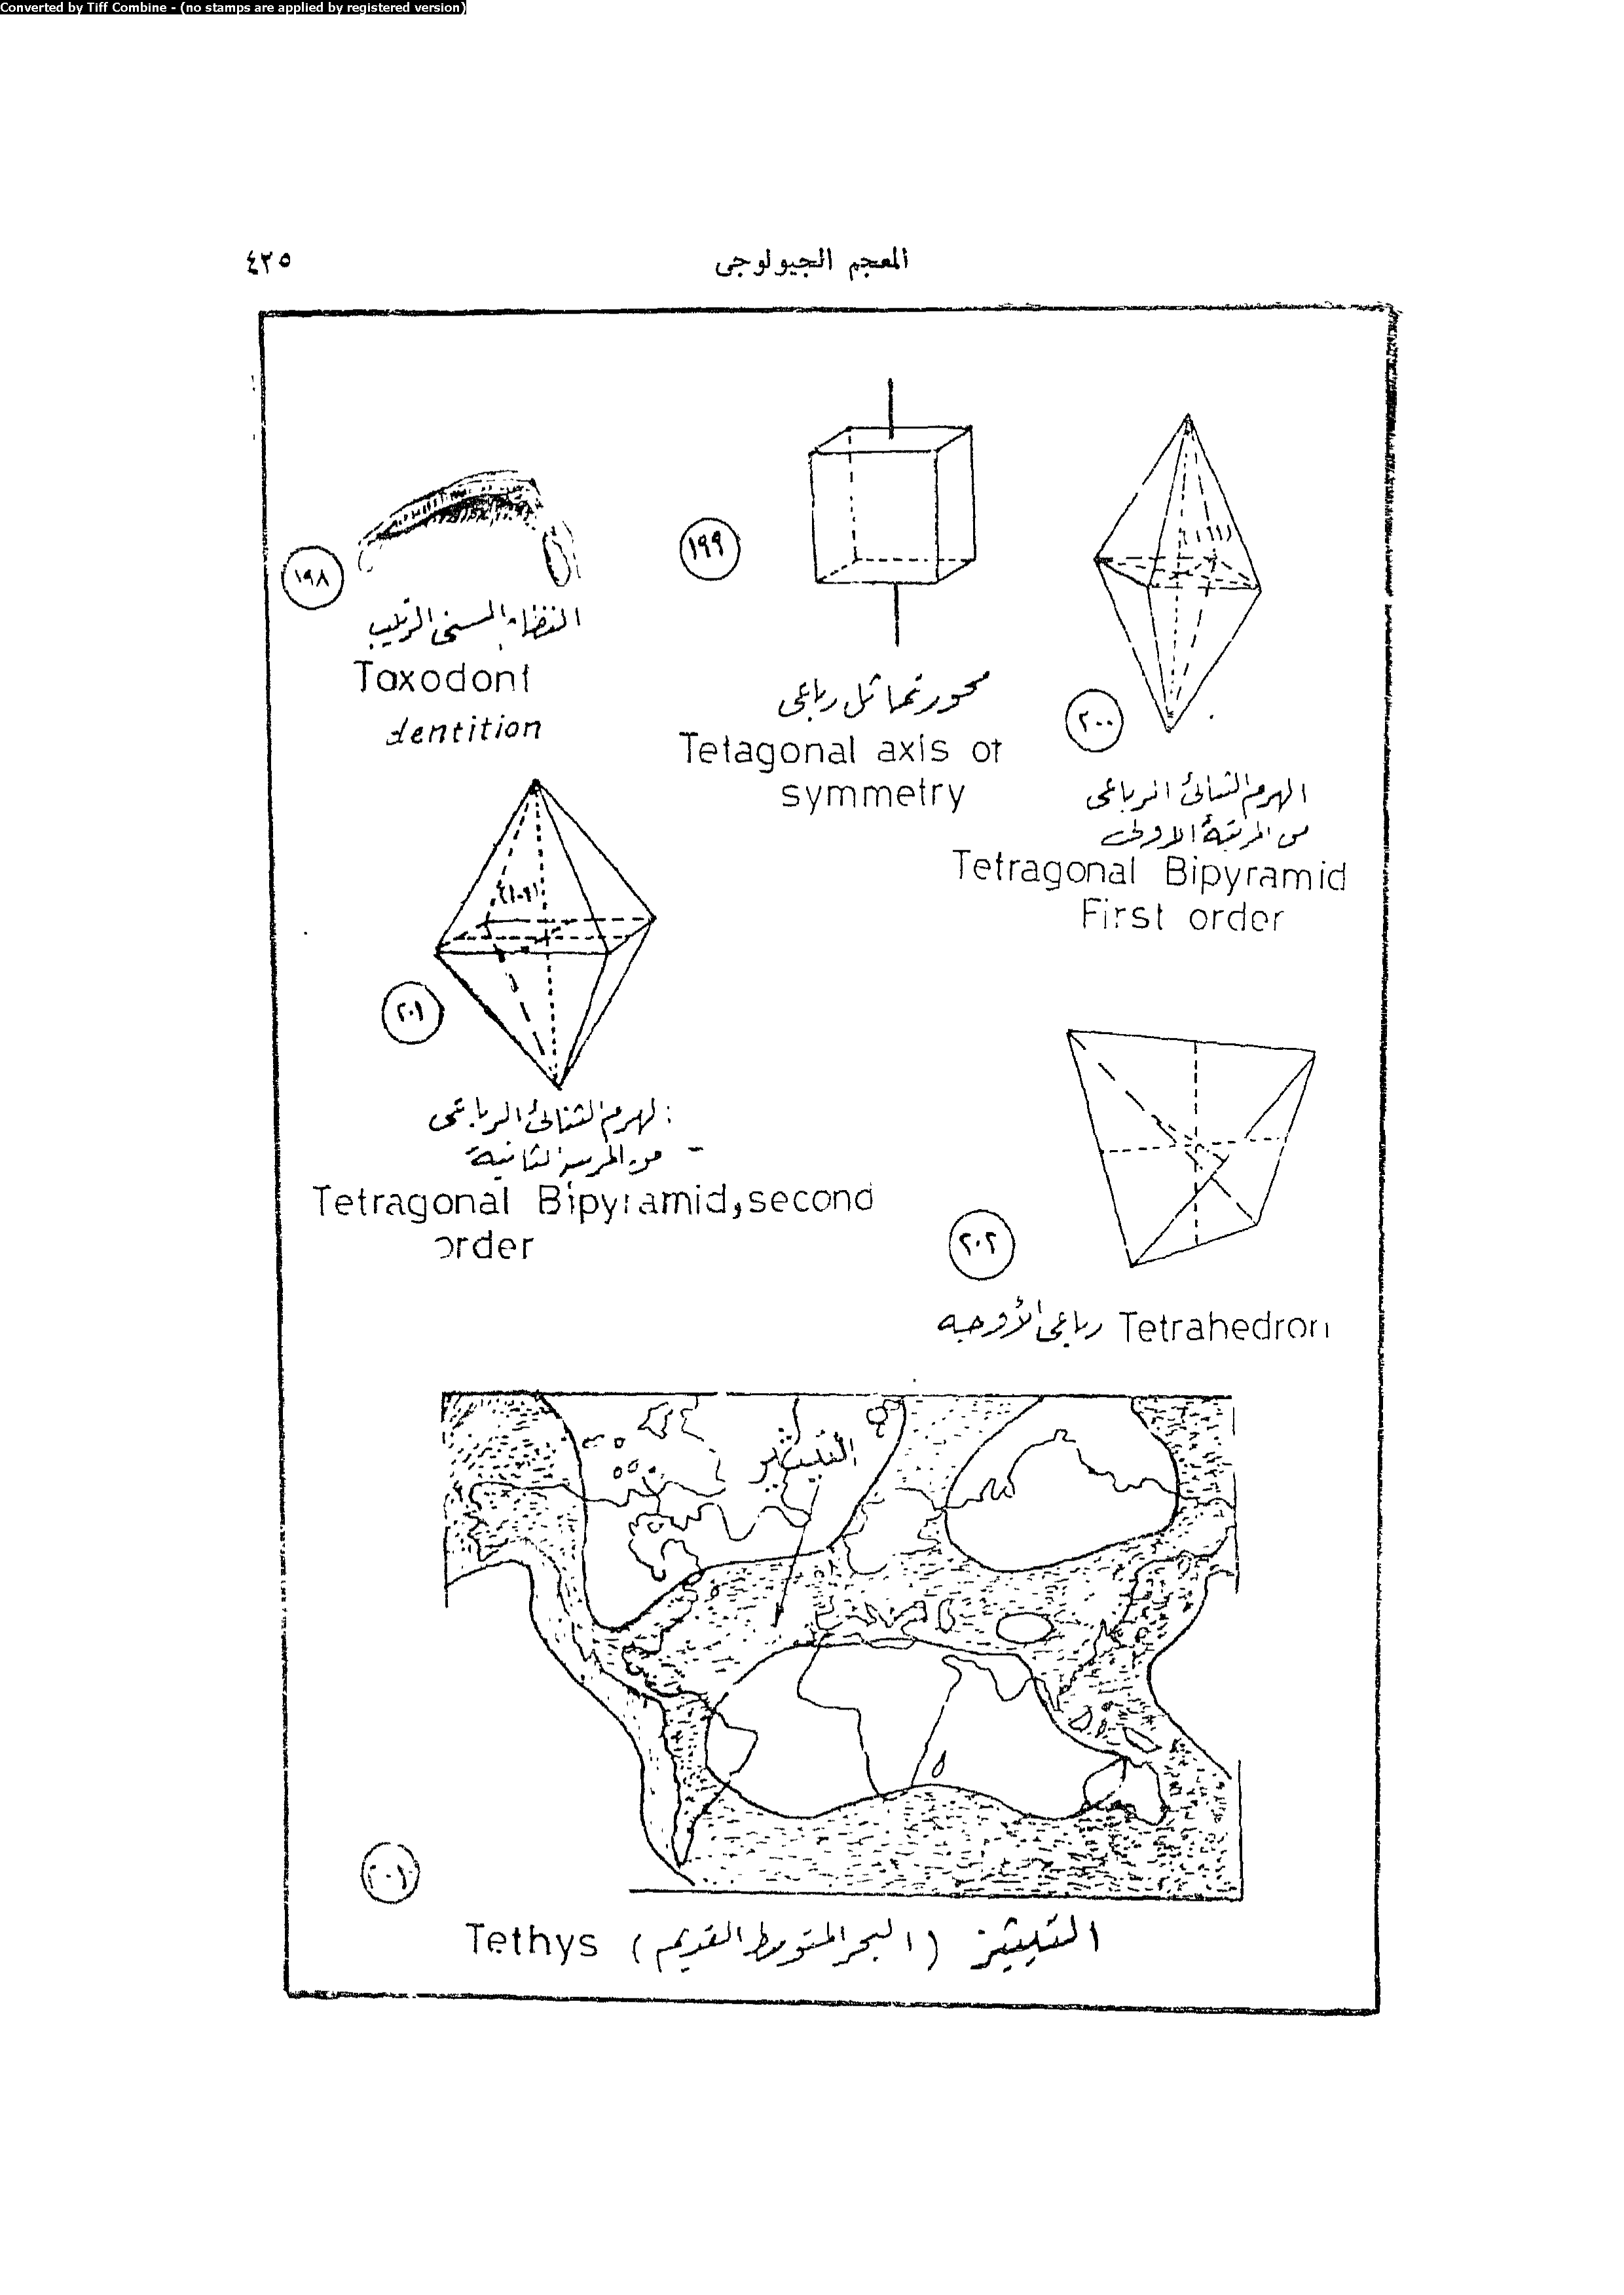 Converted by Tiff Combine - (no stamps are applied by registered version)
٤٢٥
المعجم الجيولوجى
١٩٨
النظام السنى الرتيب
Taxodont
dentition
١٩٩
محور تماثل رباعى
Tetagonal axis of
symmetry
٢٠٠
الهرم الثنائى الرباعى
من المرتبة الاولى
Tetragonal Bipyramid
First order
٢٠١
الهرم الثنائى الرباعى
من المرتبة الثانية
Tetragonal Bipyramid, second
order
٢٠٢
رباعى الأوجه Tetrahedron
التيثيز
Tethys (البحر المتوسط القديم) التيثيز